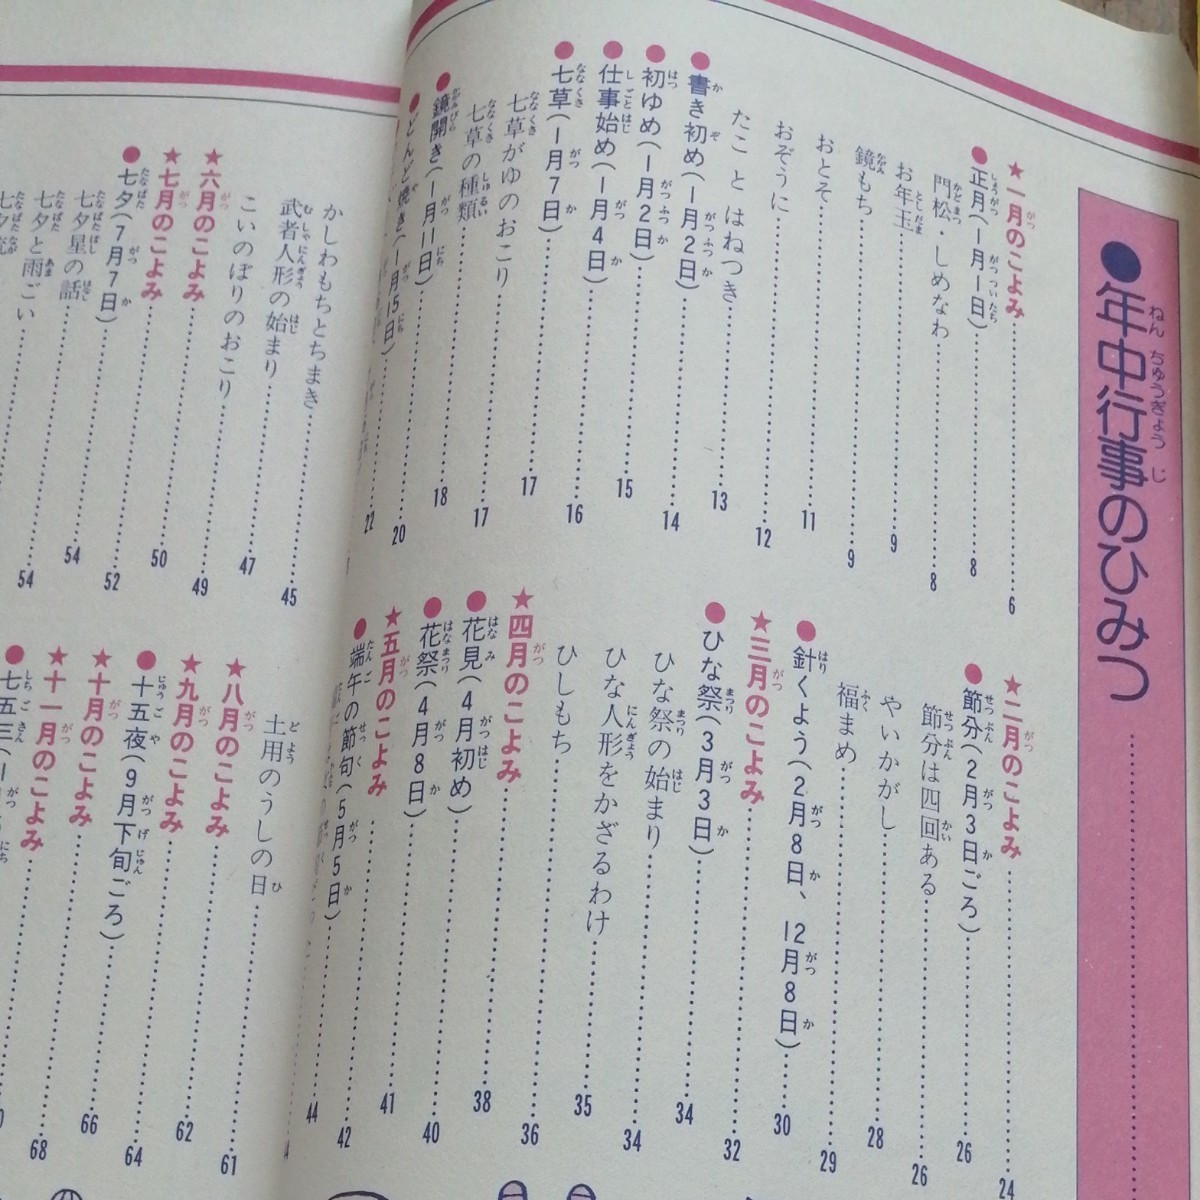 ●年中行事のひみつ
★一月のこよみ 6
●正月(1月1日) 8
門松・しめなわ 8
お年玉 9
鏡もち 9
おとそ 11
おぞうに 12
たことはねつき 13
●書き初め(1月2日) 14
●初ゆめ(1月2日) 15
●仕事始め(1月4日) 16
●七草(1月7日) 17
七草がゆのおこり 17
七草の種類 18
●鏡開き(1月11日) 20
●どんど焼き(1月15日) 22
★二月のこよみ 24
●節分(2月3日ごろ) 26
節分は四回ある 26
やいかがし 28
福まめ 29
●針くよう(2月8日、12月8日) 30
★三月のこよみ 32
●ひな祭(3月3日) 34
ひな祭の始まり 34
ひな人形をかざるわけ 35
ひしもち 36
★四月のこよみ 38
●花見(4月初め) 40
●花祭(4月8日) 41
★五月のこよみ 42
●端午の節句(5月5日) 44
かしわもちとちまき 45
武者人形の始まり 47
こいのぼりのおこり 49
★六月のこよみ 50
★七月のこよみ 52
●七夕(7月7日) 54
七夕星の話 54
七夕と雨ごい
土用のうしの日 61
★八月のこよみ 62
★九月のこよみ 64
●十五夜(9月下旬ごろ) 66
★十月のこよみ 68
★十一月のこよみ
●七五三